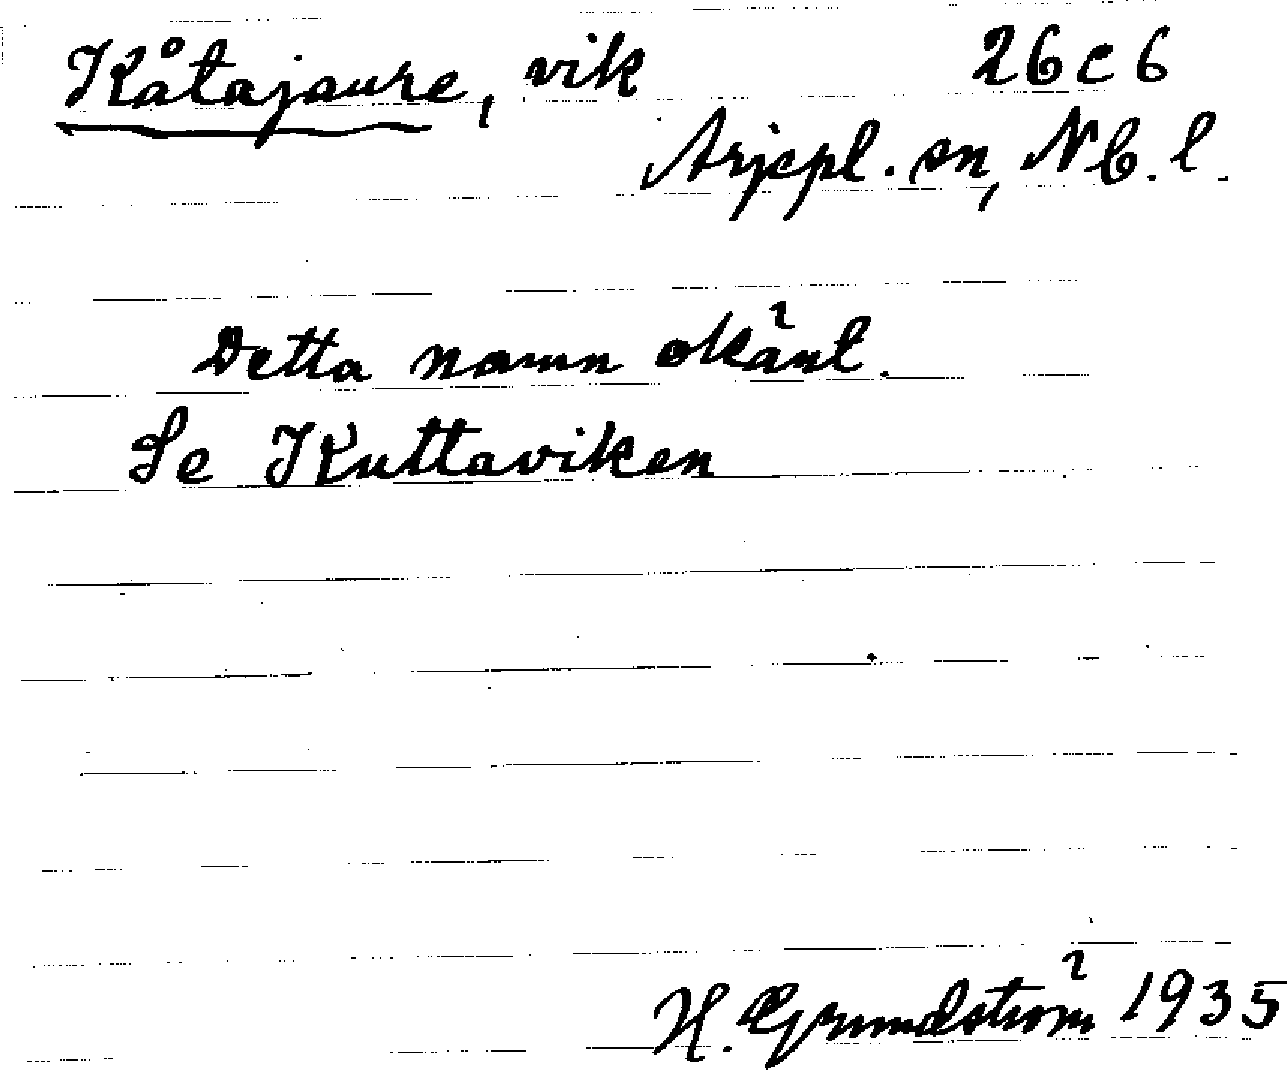 Kåtajaure, vik 26 c 6
Arjepl. sn, Nb. l.
Detta namn okänt.
Se Kuttaviken
H. Grundström 1935